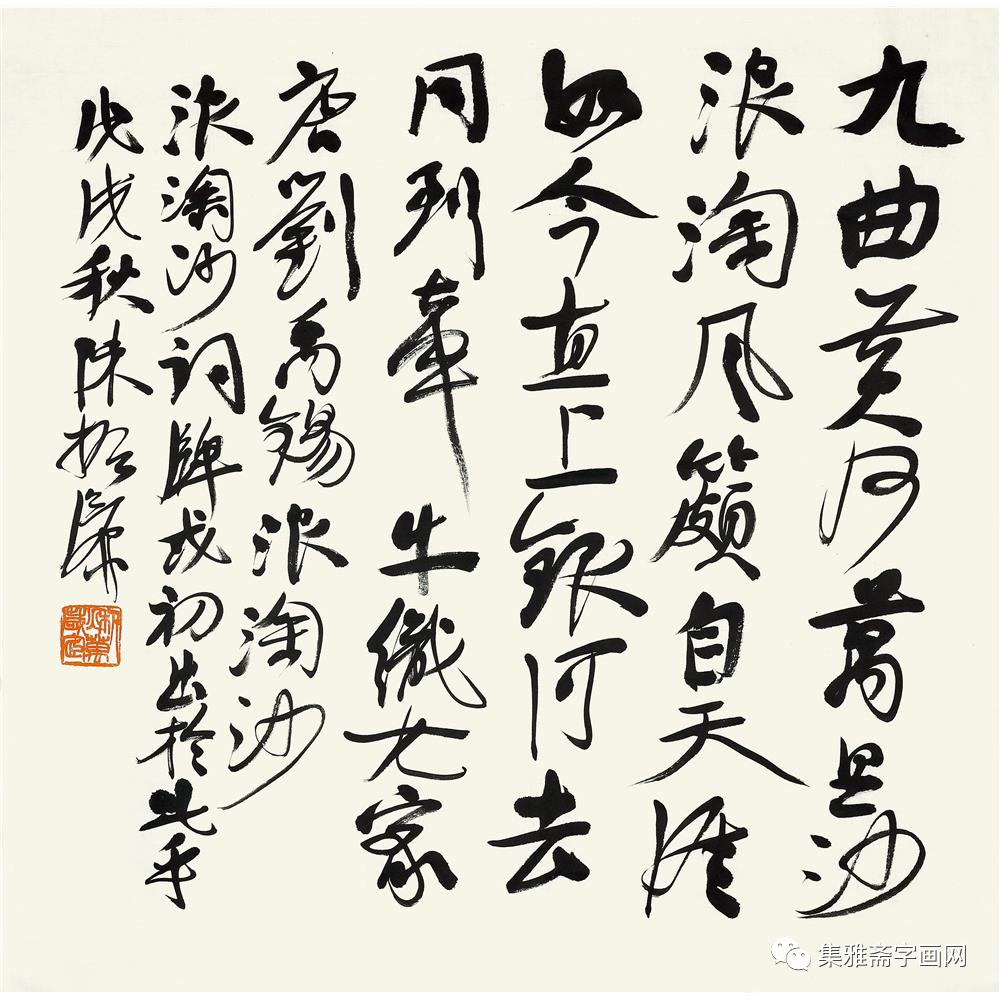 九曲黄河萬里沙
浪淘风簸自天涯
如今直上銀河去
同到牵牛織女家
唐劉禹錫浪淘沙
浪淘沙词牌或初出於此乎
戊戌秋陳振濂
集雅斋字画网